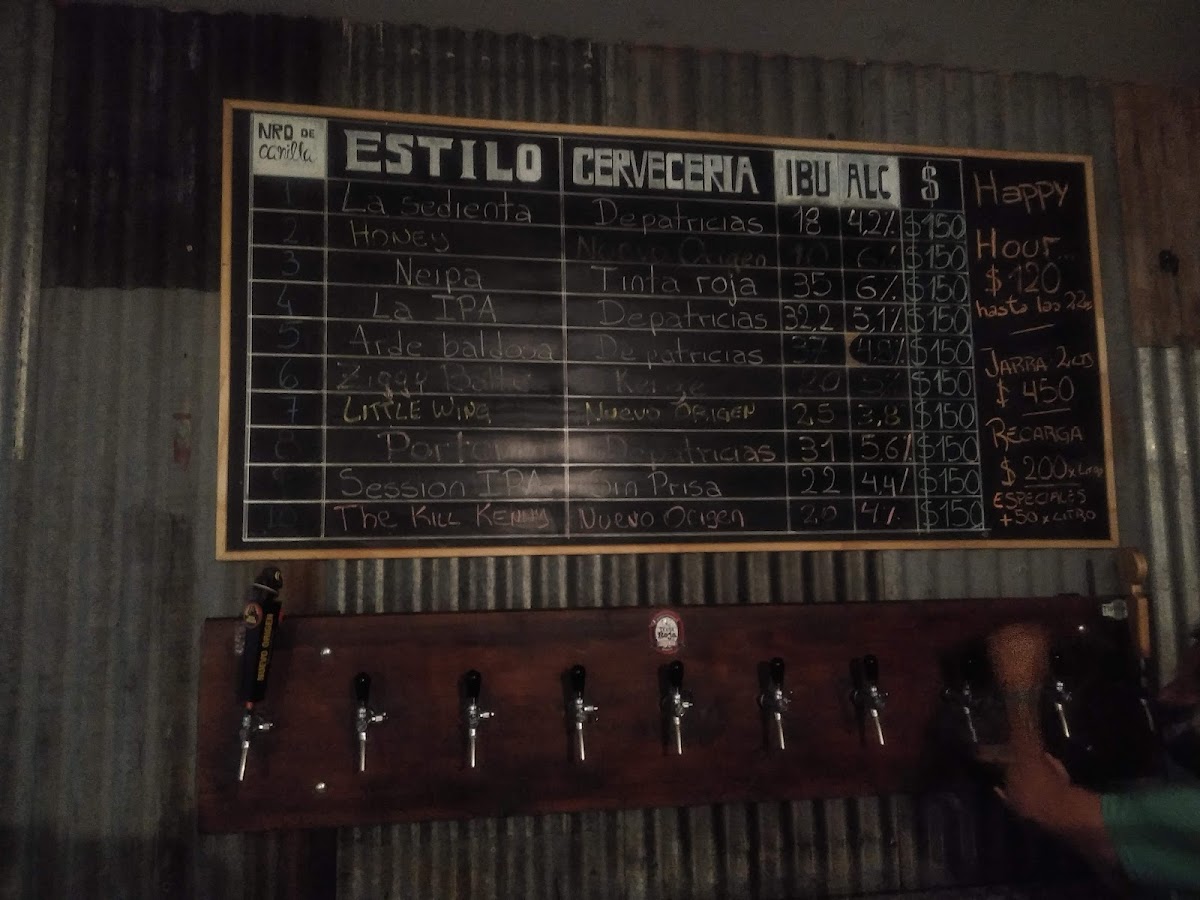 NRO DE canilla ESTILO CERVECERIA IBU ALC $
1 La sedienta Depatricias 18 4,2% $150
2 Honey Nuevo Origen 6% $150
3 Neipa Tinta roja 35 6% $150
4 La IPA Depatricias 32,2 5,1% $150
5 Arde baldosa Depatricias 37 4.8% $150
6 Ziggy 20 5% $150
7 Little Wing Nuevo Origen 25 3,8 $150
8 Depatricias 31 5,6% $150
9 Session IPA Sin Prisa 22 4,4% $150
10 The Kill Kenny Nuevo Origen 20 4% $150
Happy
Hour...
$120
hasta las 22hs
Jarra 2lts
$450
Recarga
$200 x Litro
Especiales
+50 x Litro
NUEVO ORIGEN
Roja